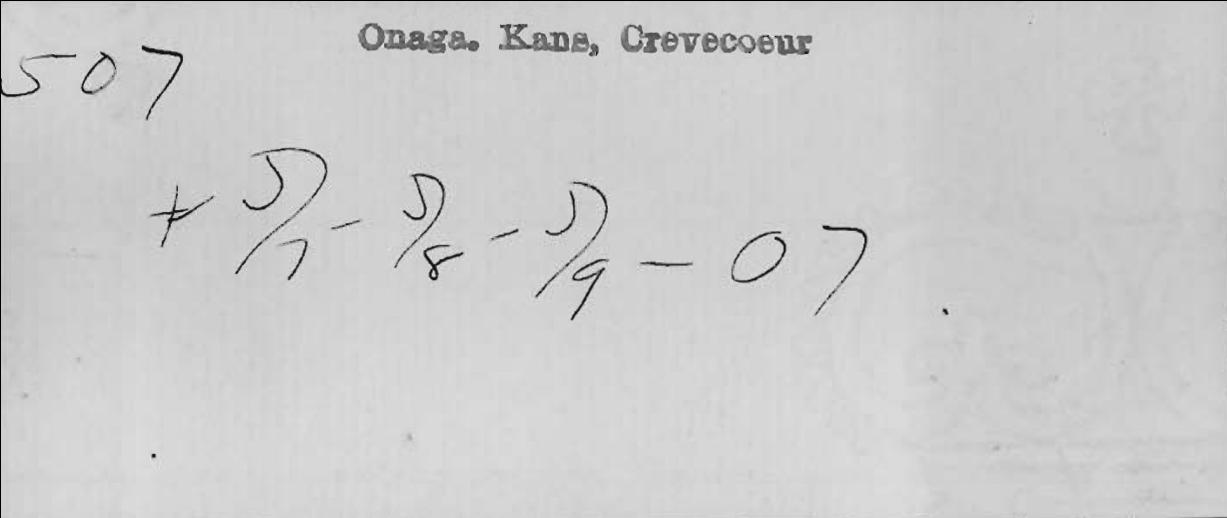 Onaga. Kans, Crevecoeur
507
+ 5/7 - 5/8 - 5/9 - 07